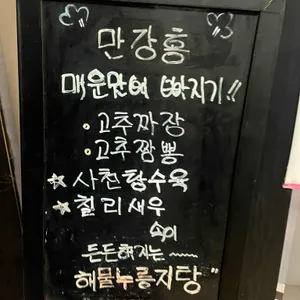 만강홍
매운맛에 빠지기!!
• 고추짜장
• 고추짬뽕
☆ 사천탕수육
☆ 칠리새우
속이
든든해지는 ~~~
해물누룽지탕"